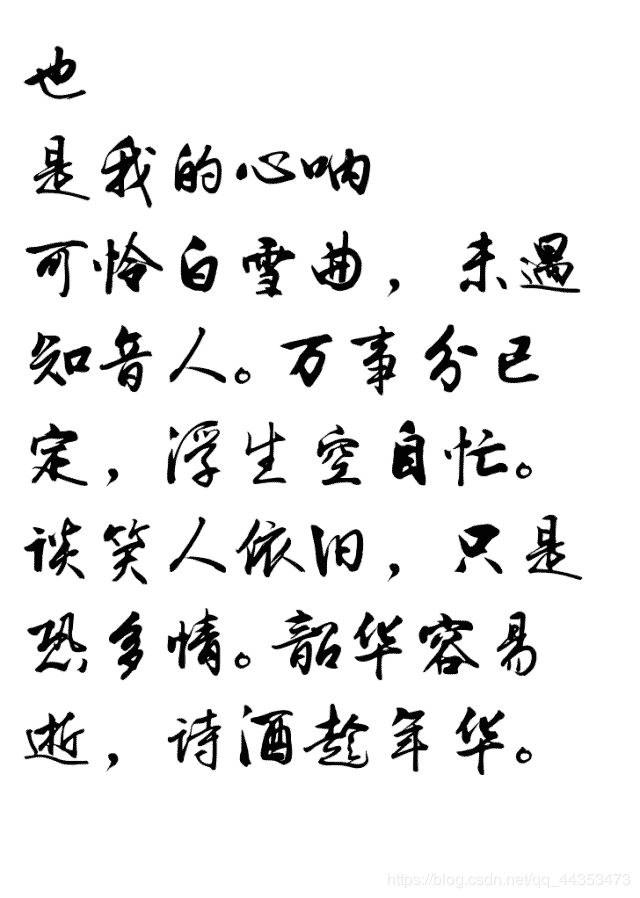 也
是我的心呐
可怜白雪曲，未遇
知音人。万事分已
定，浮生空自忙。
谈笑人依旧，只是
恐多情。韶华容易
逝，诗酒趁年华。
https://blog.csdn.net/qq_44353473